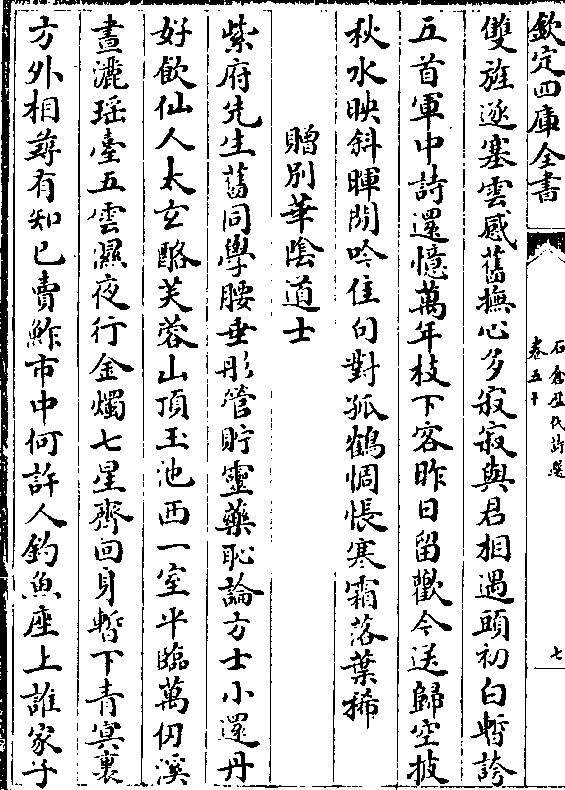 欽定四庫全書
石倉歷代詩選
卷五十
七
雙旌逐塞雲感舊撫心多寂寂與君相遇頭初白暫誇
五首軍中詩還憶萬年枝下客昨日留歡今送歸空披
秋水映斜暉閒吟佳句對孤鶴惆悵寒霜落葉稀
贈別華陰道士
紫府先生舊同學腰垂彤管貯靈藥恥論方士小還丹
好飲仙人太玄酪芙蓉山頂玉池西一室平臨萬仞溪
晝灑瑤臺五雲濕夜行金燭七星齊回身暫下青冥裏
方外相尋有知已賣鮓市中何許人釣魚座上誰家子